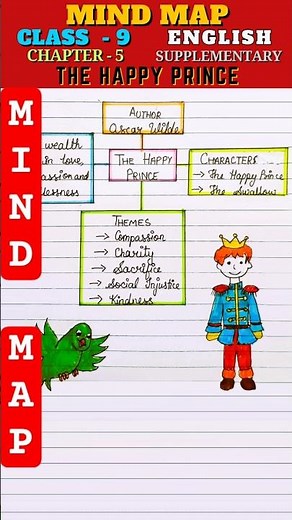 MIND MAP
CLASS - 9 ENGLISH
CHAPTER - 5 SUPPLEMENTARY
THE HAPPY PRINCE
MIND
MAP
AUTHOR
Oscar Wilde
wealth
in love,
and
THE HAPPY
PRINCE
CHARACTERS
→ The Happy Prince
→ The Swallow
THEMES
→ Compassion
→ Charity
→ Sacrifice
→ Social Injustice
→ Kindness